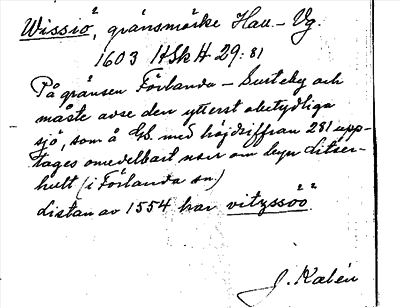 Wissiö, gränsmärke Hall.–Vg.
1603 HSkH 29:81
På gränsen Förlanda – Surteby och
måste avse den ytterst obetydliga
sjö, som å GS. med höjdsiffran 281 upp-
tages omedelbart norr om byn Litser-
hult (i Förlanda sn)
Listan av 1554 har vitzssöö
J. Kalén